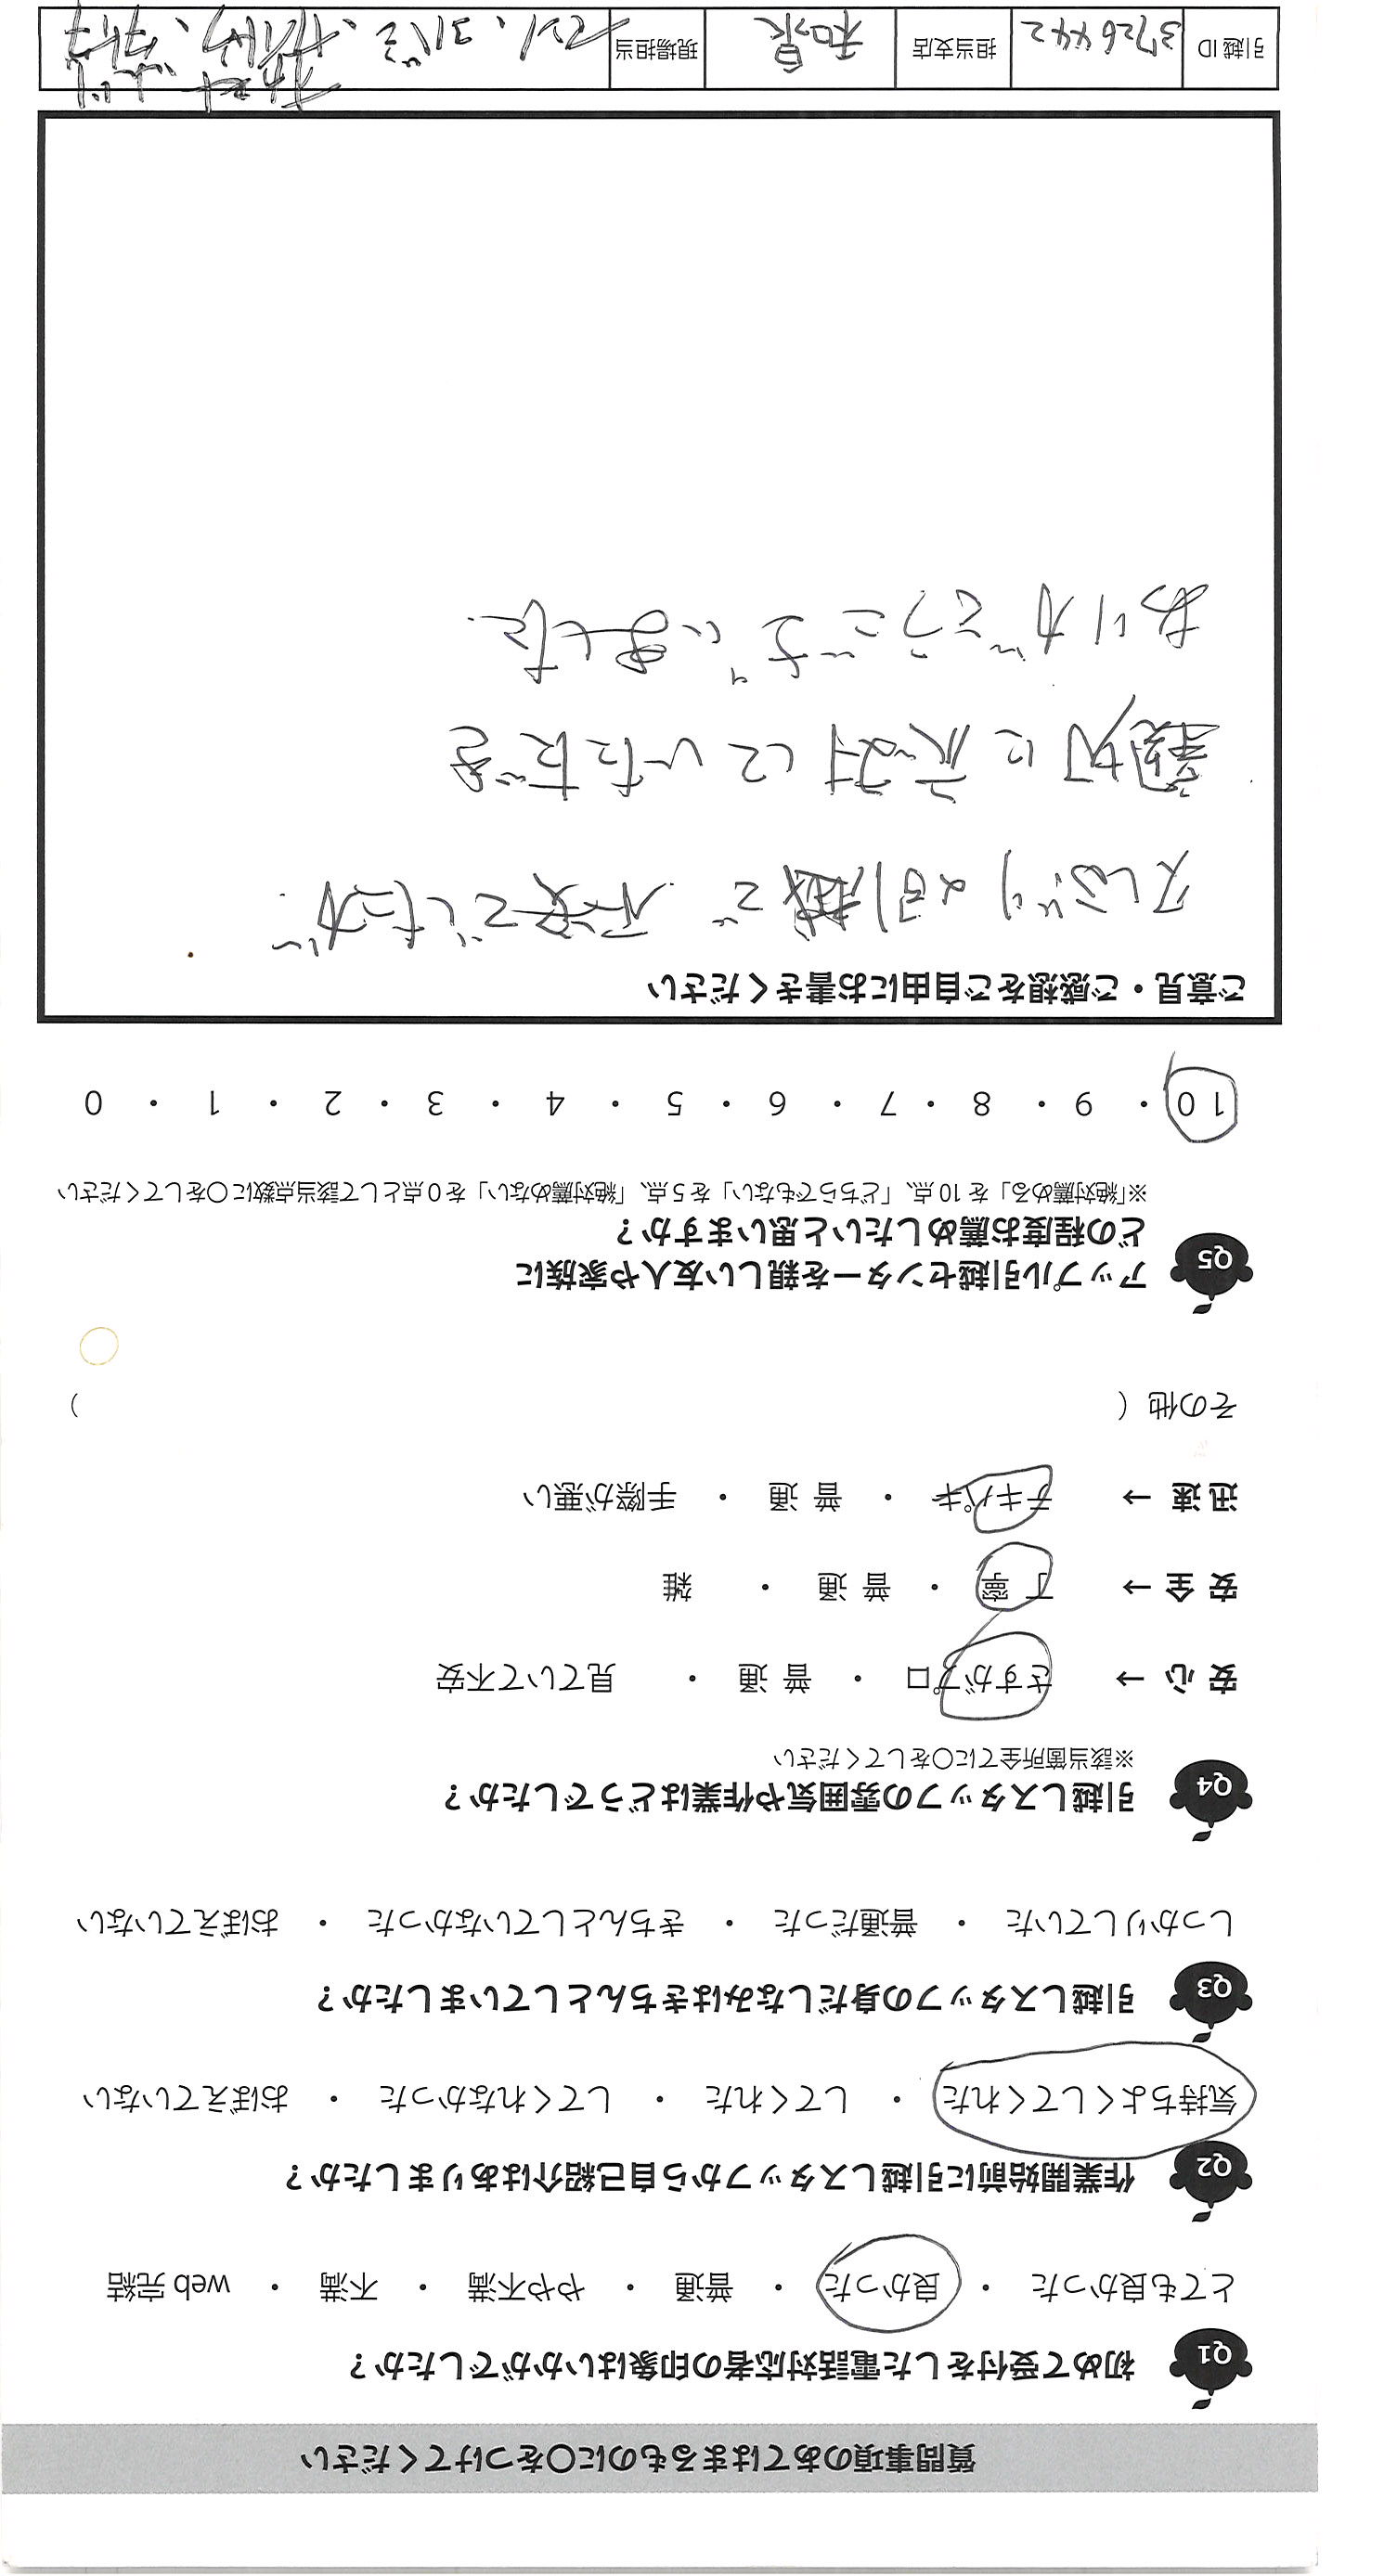 質問事項のあてはまるものに〇をつけてください
Q1 初めて受付をした電話対応者の印象はいかがでしたか？
とても良かった ・ 良かった ・ 普通 ・ やや不満 ・ 不満 ・ web 完結
Q2 作業開始前に引越しスタッフから自己紹介はありましたか？
気持ちよくしてくれた ・ してくれた ・ してくれなかった ・ おぼえていない
Q3 引越しスタッフの身だしなみはきちんとしていましたか？
しっかりしていた ・ 普通だった ・ きちんとしていなかった ・ おぼえていない
Q4 引越しスタッフの雰囲気や作業はどうでしたか？
※該当箇所全てに〇をしてください
安 心 → さすがプロ ・ 普 通 ・ 見ていて不安
安 全 → 丁 寧 ・ 普 通 ・ 雑
迅 速 → テキパキ ・ 普 通 ・ 手際が悪い
その他（ ）
Q5 アップル引越センターを親しい友人や家族に
どの程度お薦めしたいと思いますか？
※「絶対薦める」を 10 点、「どちらでもない」を 5 点、「絶対薦めない」を 0 点として該当点数に〇をしてください
10 ・ 9 ・ 8 ・ 7 ・ 6 ・ 5 ・ 4 ・ 3 ・ 2 ・ 1 ・ 0
ご意見・ご感想をご自由にお書きください
久しぶりの引越で 不安でしたが
親切に応対していただき
ありがとうございました.
引越 ID 3726442 担当支店 和泉 現場担当